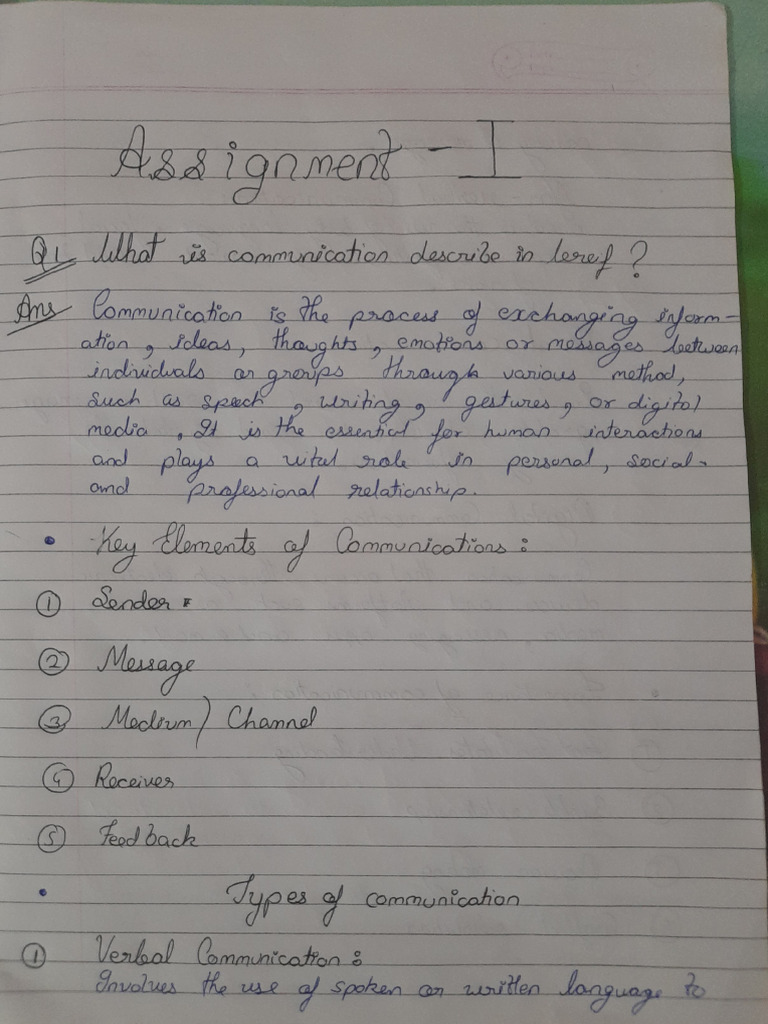 Assignment - I
Q1. What is communication describe in breef ?
Ans Communication is the process of exchanging inform-
ation, ideas, thoughts, emotions or messages between
individuals or groups through various method,
such as speech, writing, gestures, or digital
media, It is the essential for human interactions
and plays a vital role in personal, social
and professional relationship.
• Key Elements of Communications :
① Sender
② Message
③ Medium / Channel
④ Receiver
⑤ Feedback
• Types of communication
① Verbal Communication :
Involves the use of spoken or written language to